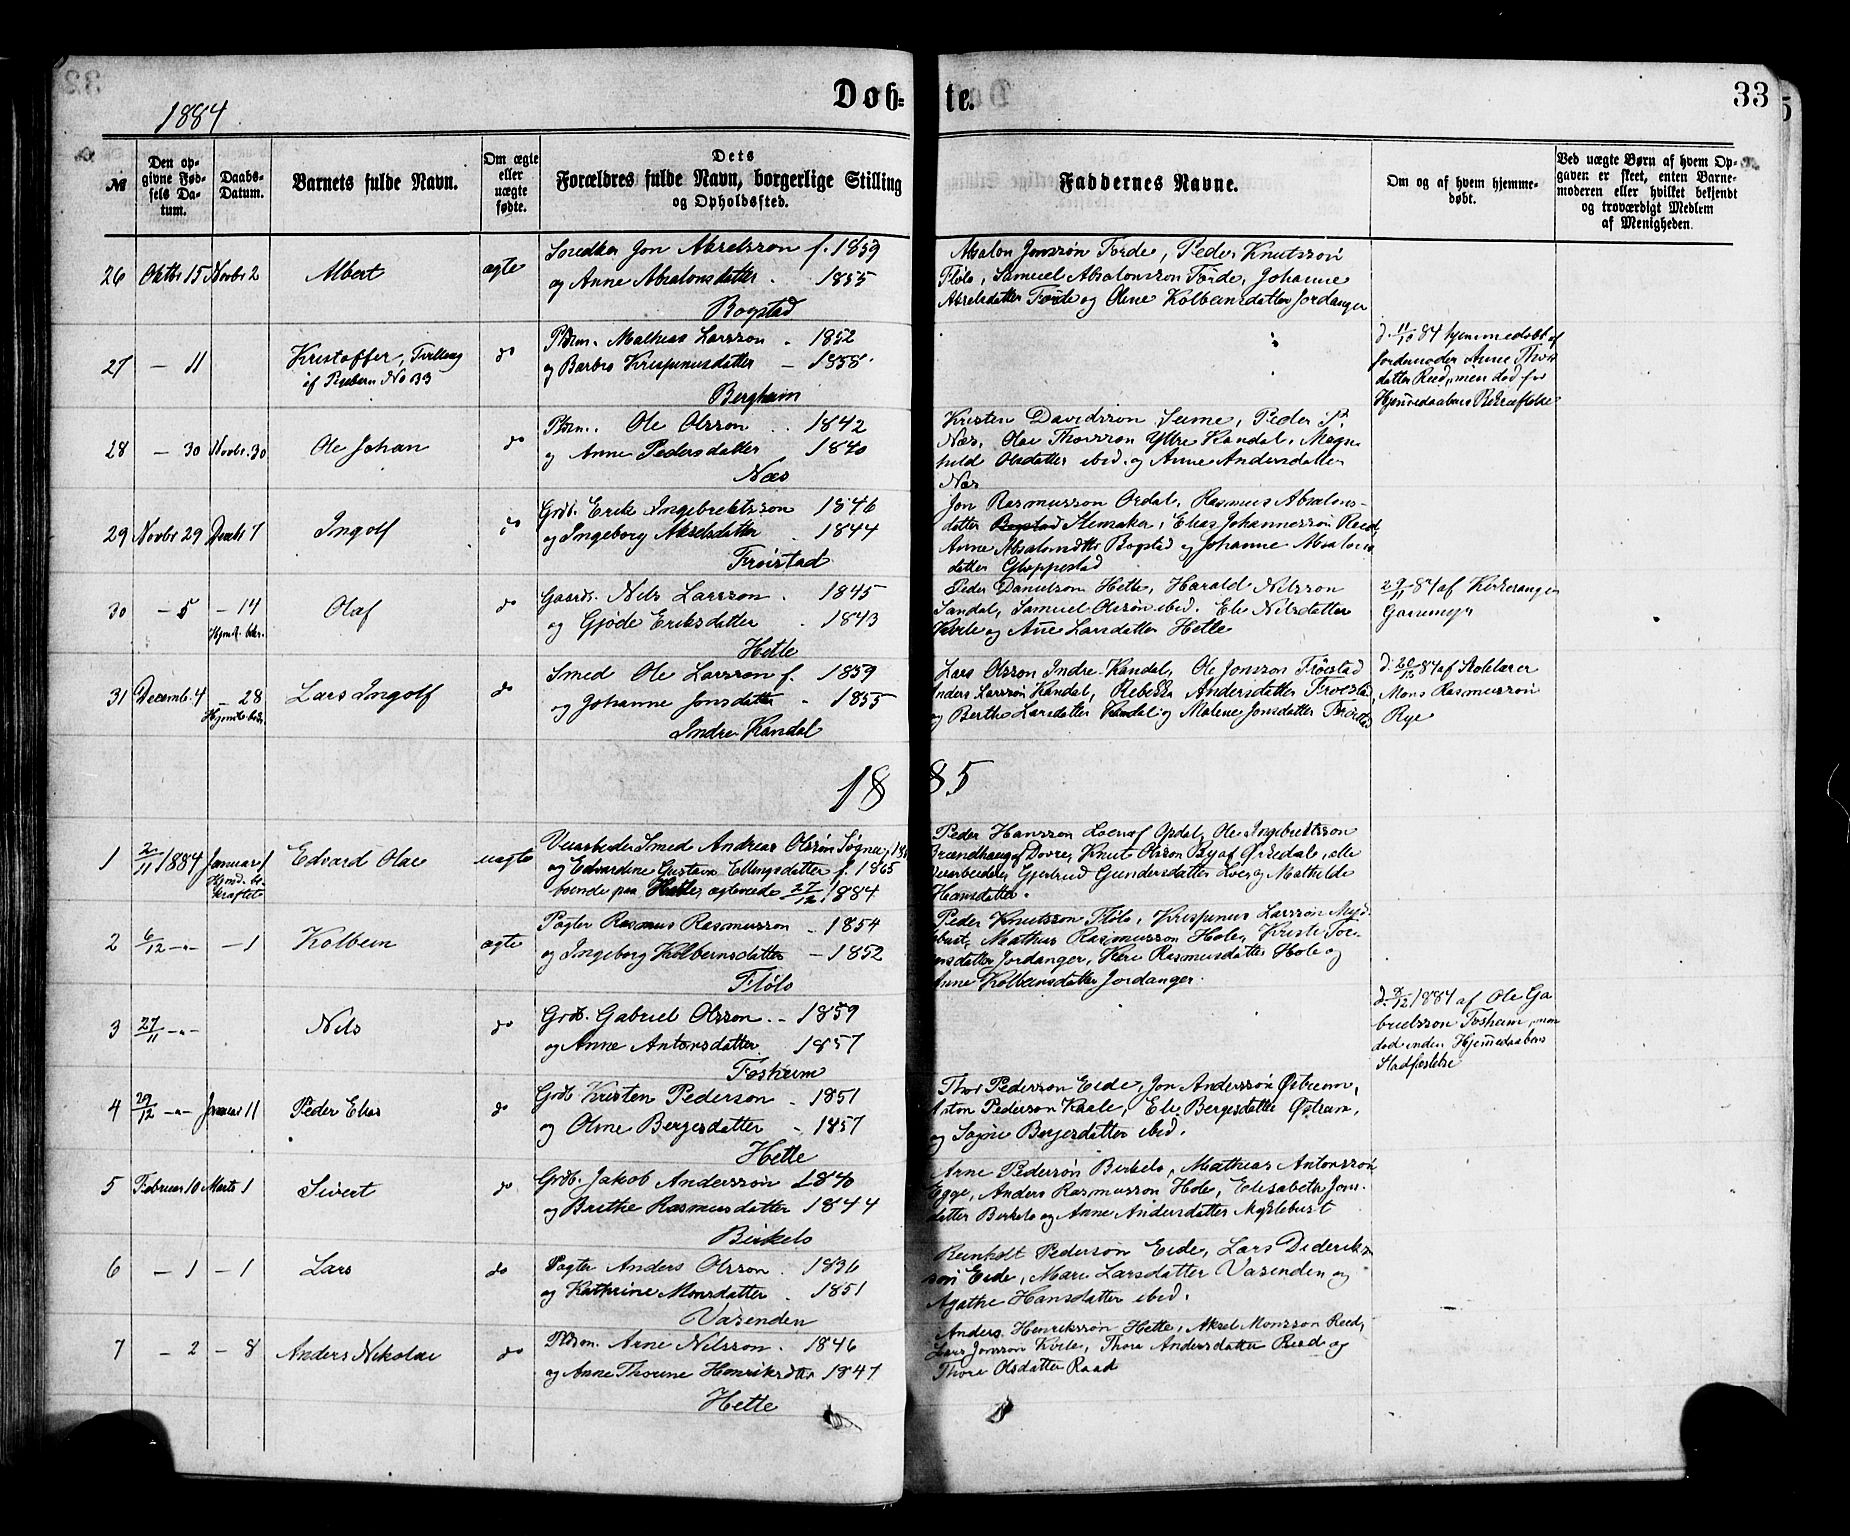 1884
Døb-
te.
33
№
Den op-
givne Fød-
sels Da-
tum.
Daabs-
Datum.
Barnets fulde Navn.
Om ægte
eller
uægte
fødte.
Dets
Forældres fulde Navn, borgerlige Stilling
og Opholdssted.
Faddernes Navne.
Om og af hvem hjemme-
døbt.
Ved uægte Børn af hvem Op-
gaven er skeet, enten Barne-
moderen eller hvilket bekjendt
og troværdigt Medlem
af Menigheden.
26 Oktbr 15 Novbr 2 Albert ægte
Jon Akselssøn f. 1859
og Anne Absalonsdatter . 1855
Bogstad
Absalon Jonssøn Førde, Peder Knutssøn
Flølo, Samuel Absalonssøn Førde, Johanne
Akselsdatter Førde og Oline Kolbeinsdatter Jordanger
27 — 11 Kristoffer, Tvilling
af No 33
do
Pldsm. Mathias Larssøn . 1852
og Barbro Krispinusdatter — 1858
Bergheim
d. 11/10 84 hjemmedøbt af
Jordemoder Anne Thor
datter Reed, men død før
Hjemmedaabens Bekræftelse
28 — 30 Novbr. 30 Ole Johan do
Pldsm. Ole Olssøn . . 1842
og Anne Pedersdatter 1840
Næs
Kristen Davidssøn Seime, Peder P.
Næs, Olai Thorssøn Yttre Kandal, Magn
hild Olsdatter ibid. og Anne Andersdatter
Næs
29 Novbr 29 Decbr 7 Ingolf do
Grdb. Erik Ingebrektssøn 1846
og Ingeborg Akselsdatter . 1844
Frøistad
Jon Rasmussøn Ordal, Rasmus Absalons-
datter Bogstad Hemsaker, Elias Johannessøn Reed
Anne Absalonsdttr Bogstad og Johanne Absalons
datter Gloppestad
30 — 5 — 14 Olaf do
Hjemd. bekr.
Gaardb. Nils Larssøn . 1845
og Gjøde Eriksdatter . 1843
Hette
Peder Danielsøn Hette, Harald Nilssøn
Sandal, Samuel Olesøn ibid. Eli Nilsdatter
Kvile og Ane Larsdatter Hette
29/11 84 af Kirkesanger
Gausemyr
31 Decemb. 4 — 28 Lars Ingolf do
Hjemdb. bekr.
Smed Ole Larssøn f. 1859
og Johanne Jonsdatter . 1855
Indre Kandal
Lars Olssøn Indre-Kandal, Ole Jonssøn Frøistad
Anders Larssøn Kandal, Rebekka Andersdatter Frøista
og Berthe Larsdatter Kandal og Malene Jonsdatter Frøistad
d. 20/12 84 af Skolelærer
Mons Rasmussøn
Rye
18
85
1 2/11 1884 Januar 1 Edvard Olai uægte
Hjemd. be-
kræftet
Veiarbeider Smed Andreas Olssøn Sogne,
og Edvardine Gustava Ellingsdatter f. 1865
boende paa Hette, ægteviede 27/12 1884
Peder Hanssøn Loen af Opdal, Ole Ingebrektssøn
Brændhaug af Dovre, Knut Olssøn By af Ørskedale, alle
Veiarbeidere, Gjertrud Gundersdatter Loen og Mathilde
Hansdatter.
2 6/12 -"- — 1 Kolbein ægte
Pagter Rasmus Rasmussøn . 1854
og Ingeborg Kolbeinsdatter — 1852
FløLo
Peder Knutssøn Fløto, Krispinus Larssøn Mykl
ebust, Mathias Rasmussøn Hole, Kristi
nsdatter Jordanger, Kari Rasmusdatter Hole og
Anne Kolbeinsdatter Jordanger.
3 27/11 -"- Nils do
Grdb. Gabriel Olssøn . — 1859
og Anne Antonsdatter 1857
Fosheim
d. 9/12 1884 af Ole Ga
brielssøn Fosheim, men
død inden Hjemmedaabens
Stadfæstelse
4 29/12 -"- Januar 11 Peder Elias do
Grdb Kristen Pederson . 1851
og Oline Bergesdatter . 1857
Hette
Thor Pedersøn Eide, Jon Anderssøn Østreim,
Anton Pedersøn Kaale, Eli Bergesdatter Østrem,
og Signe Bergesdatter ibid.
5 Februar 10 Marts 1 Sivert do
Grdb. Jakob Anderssøn 1840
og Birthe Rasmusdatter 1844
Birkelo
Arne Pedersøn Birkelo, Mathias Antonssøn
Egge, Anders Rasmussøn Hole, Elisabeth Jons-
datter Birkelo og Anne Andersdatter Myklebust
6 — 1 — 1 Lars do
Pagter Anders Olssøn . 1836
og Kathrine Monsdatter . 1851
Vasenden
Reinholt Pedersøn Eide, Lars Dideriks
søn Eide, Mari Larsdatter Vasenden og
Agathe Hansdatter ibid.
7 — 2 — 8 Anders Nikolai do
Pldsm. Arne Nilssøn . 1846
og Anne Thorine Henriksdttr 1847
Hette
Anders Henrikssøn Hette, Aksel Monssøn Reed,
Lars Jonssøn Kvile, Thora Andersdatter Reed og
Thora Olsdatter Raad